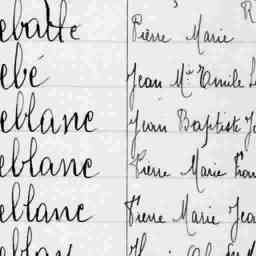 ebatte Pierre Marie
ebé Jean M.ie Emile
eblanc Jean Baptiste
eblanc Pierre Marie
eblanc Pierre Marie Jea
eblan